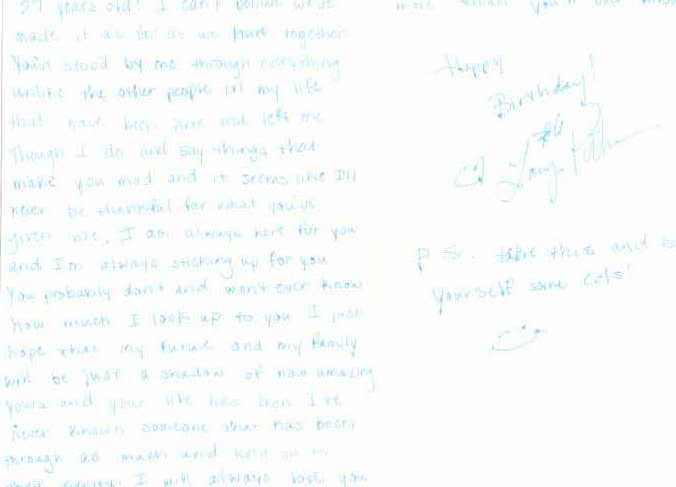 27 years old! I can't believe we've
made it as far as we have together
You've stood by me through everything
unlike the other people in my life
that have been here and left me
Though I do and say things that
make you mad and it seems like I'll
never be thankful for what you've
given me, I am always here for you
and I'm always sticking up for you
You probably don't and won't ever know
how much I look up to you I just
hope that my future and my family
will be just a shadow of how amazing
yours and your life has been I've
never known someone that has been
through as much and held on
I will always love you
more than you'll ever know
Happy
Birthday!
P.S. take this and
yourself some